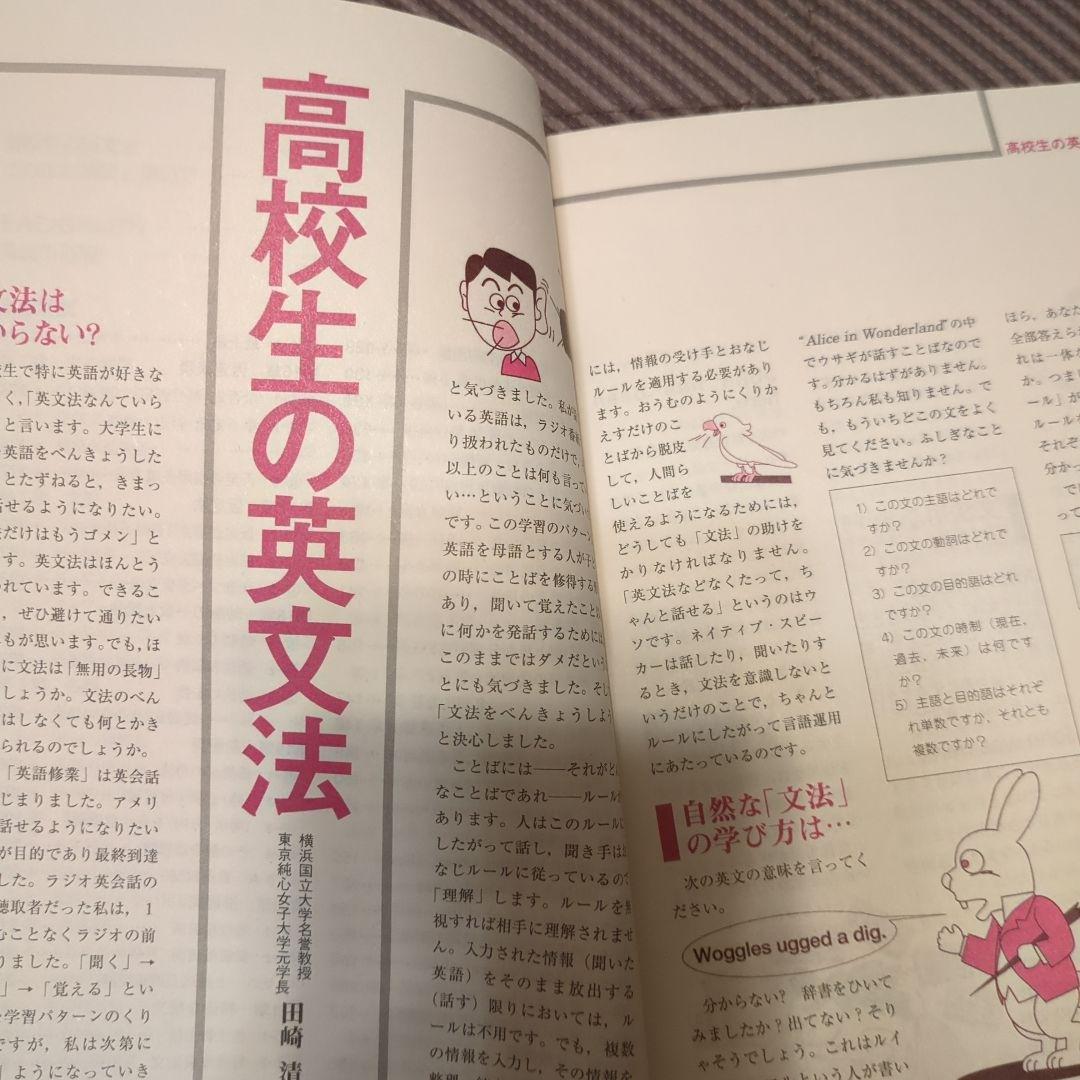 高校生の英文法
横浜国立大学名誉教授
東京純心女子大学元学長
田崎 清
文法は
いらない?
生で特に英語が好きな
く,「英文法なんていら
と言います。大学生に
英語をべんきょうした
とたずねると，きまっ
話せるようになりたい。
だけはもうゴメン」と
す。英文法はほんとう
れています。できるこ
，ぜひ避けて通りたい
もが思います。でも，ほ
に文法は「無用の長物」
しょうか。文法のべん
はしなくても何とかき
られるのでしょうか。
「英語修業」は英会話
じまりました。アメリ
話せるようになりたい
が目的であり最終到達
した。ラジオ英会話の
聴取者だった私は，1
むことなくラジオの前
りました。「聞く」→
」→「覚える」とい
学習パターンのくり
ですが，私は次第に
」ようになっていき
と気づきました。私が
いる英語は，ラジオ番
り扱われたものだけで，
以上のことは何も言って
い…ということに気づい
です。この学習のパターン
英語を母語とする人が
の時にことばを修得する
あり，聞いて覚えたこと
に何かを発話するためには
このままではダメだという
とにも気づきました。そし
「文法をべんきょうしよう
と決心しました。
ことばには――それがど
なことばであれ――ルール
あります。人はこのルールに
したがって話し，聞き手は
なじルールに従っているので
「理解」します。ルールを無
視すれば相手に理解されませ
ん。入力された情報（聞いた
英語）をそのまま放出する
（話す）限りにおいては，ル
ールは不用です。でも，複数
の情報を入力し，その情報を
高校生の英
には，情報の受け手とおなじ
ルールを適用する必要があり
ます。おうむのようにくりか
えすだけのこ
とばから脱皮
して，人間ら
しいことばを
使えるようになるためには，
どうしても「文法」の助けを
かりなければなりません。
「英文法などなくたって，ち
ゃんと話せる」というのはウ
ソです。ネイティブ・スピー
カーは話したり，聞いたりす
るとき，文法を意識しないと
いうだけのことで，ちゃんと
ルールにしたがって言語運用
にあたっているのです。
自然な「文法」
の学び方は…
次の英文の意味を言ってく
ださい。
Woggles ugged a dig.
分からない? 辞書をひいて
みましたか? 出てない? そり
ゃそうでしょう。これはルイ
ルという人が書い
“Alice in Wonderland”の中
でウサギが話すことばなので
す。分かるはずがありません。
もちろん私も知りません。で
も，もういちどこの文をよく
見てください。ふしぎなこと
に気づきませんか?
1）この文の主語はどれで
すか?
2）この文の動詞はどれで
すか?
3）この文の目的語はどれ
ですか?
4）この文の時制（現在，
過去，未来）は何です
か?
5）主語と目的語はそれぞ
れ単数ですか，それとも
複数ですか?
ほら，あなた
全部答えら
れは一体
か。つま
ール」が
ルール
それぞ
分かっ
で
って